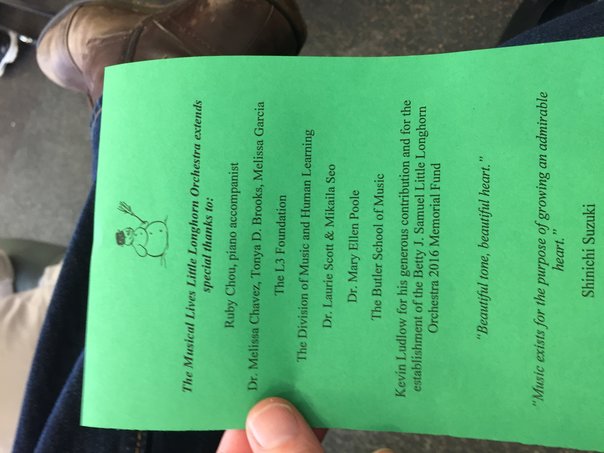 The Musical Lives Little Longhorn Orchestra extends
special thanks to:
Ruby Chou, piano accompanist
Dr. Melissa Chavez, Tonya D. Brooks, Melissa Garcia
The L3 Foundation
The Division of Music and Human Learning
Dr. Laurie Scott & Mikaila Seo
Dr. Mary Ellen Poole
The Butler School of Music
Kevin Ludlow for his generous contribution and for the
establishment of the Betty J. Samuel Little Longhorn
Orchestra 2016 Memorial Fund
"Beautiful tone, beautiful heart."
"Music exists for the purpose of growing an admirable
heart."
Shinichi Suzuki